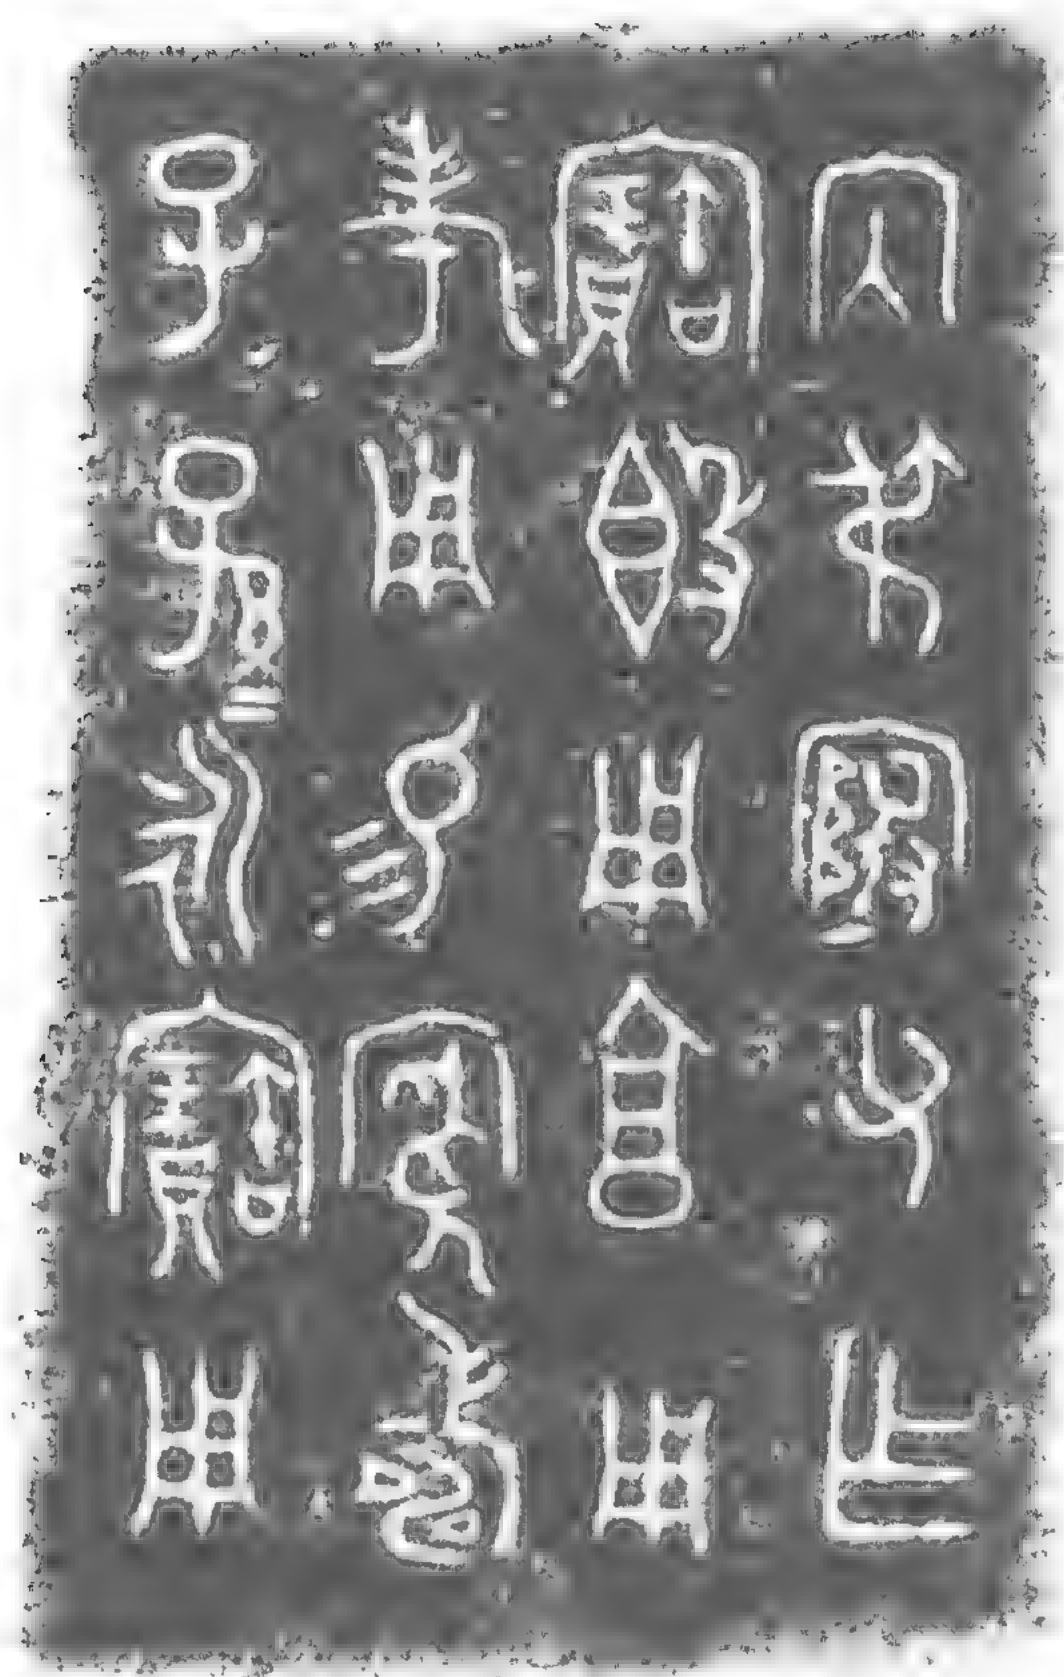 內叔𡫳父乍
寶𣪘用亯用
𠦪用易眉壽
子孫=永寶用